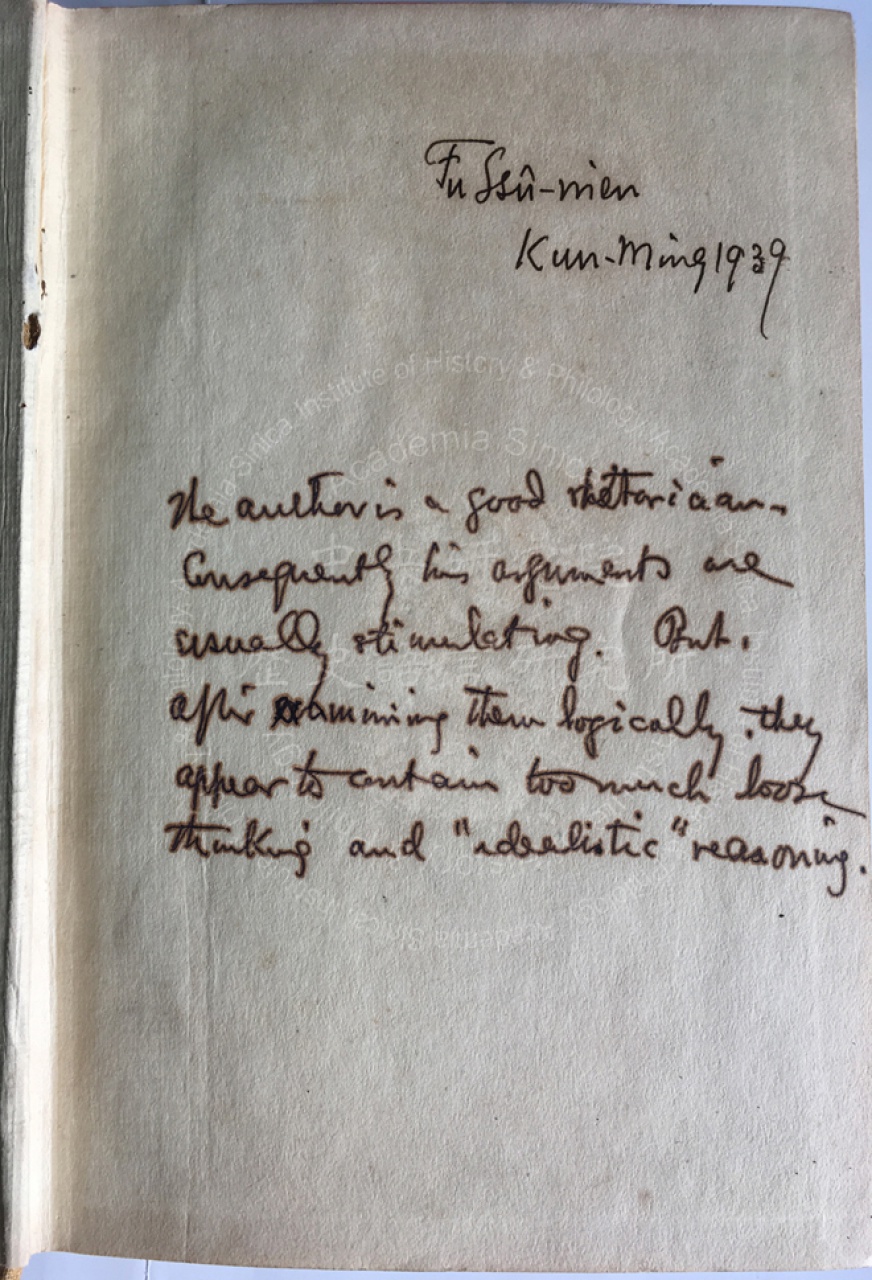 Fu Ssŭ-nien
Kun-Ming 1939
The author is a good rhetorician.
Consequently his arguments are
usually stimulating. But,
after examining them logically, they
appear to contain too much loose
thinking and "idealistic" reasoning.
Institute of History & Philology
Academia Sinica